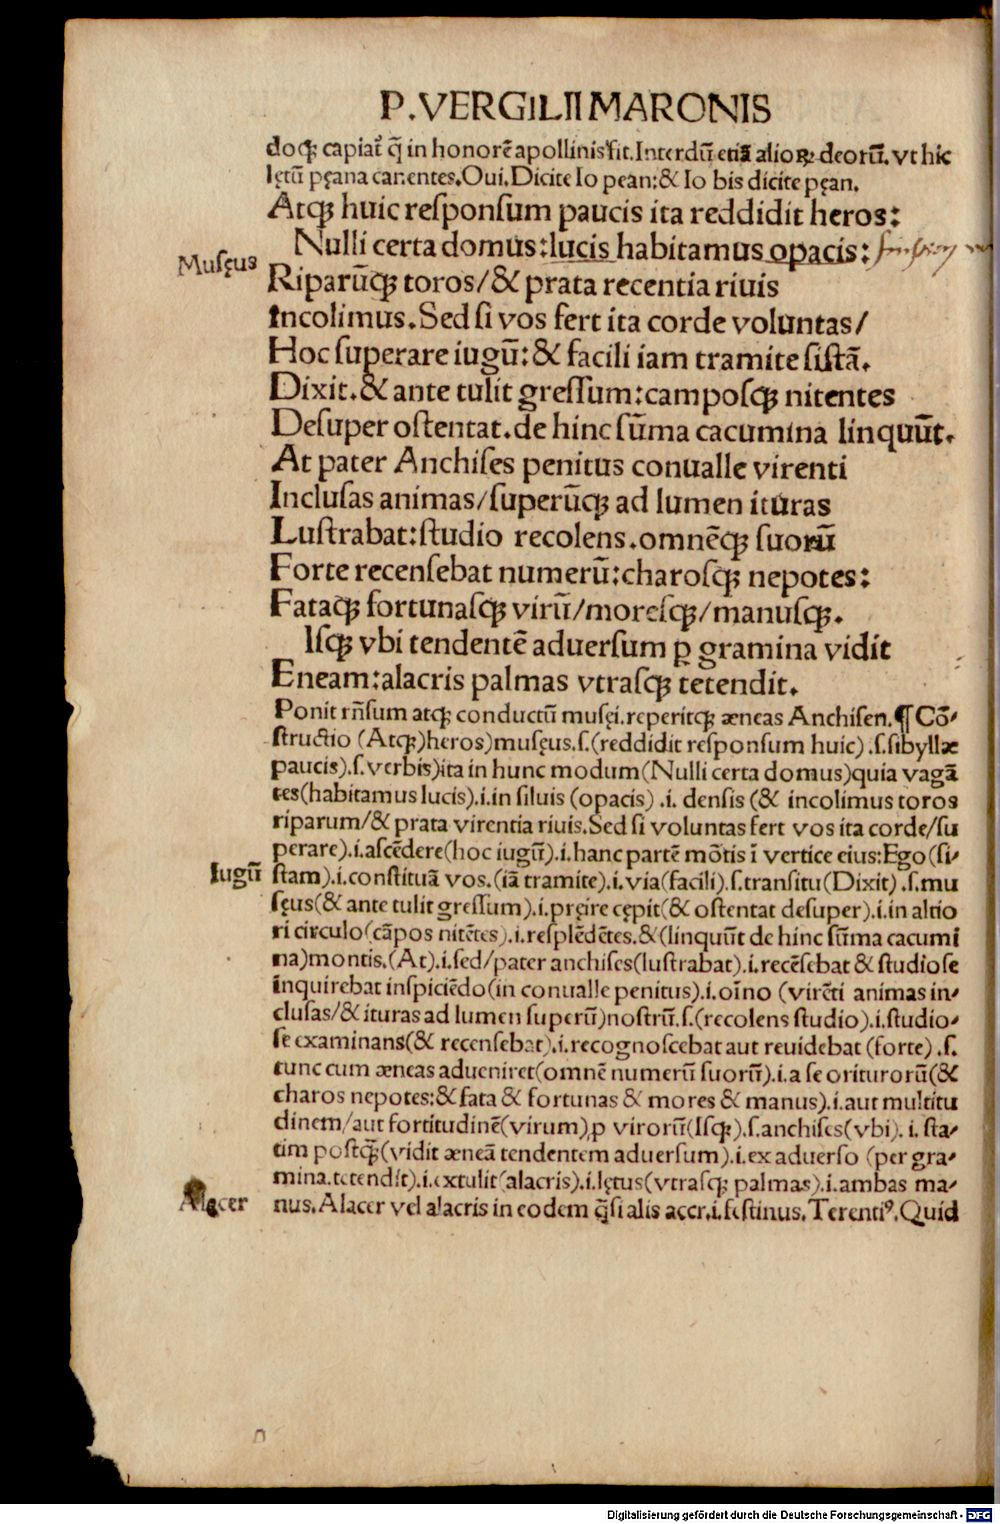 P.VERGILII MARONIS
doq́; capiat᷑ q̄ in honorē apollinis fit.Interdū etiā alioꝝ deorū.vt hic
lętū pęana canentes.Oui.Dicite Io pean:& Io bis dicite pęan.
Atq́; huic reſponſum paucis ita reddidit heros:
Nulli certa domus:lucis habitamus opacis:
Muſęus
Riparūq́; toros/& prata recentia riuis
Incolimus.Sed ſi vos fert ita corde voluntas/
Hoc ſuperare iugū:& facili iam tramite ſiſtā.
Dixit.& ante tulit greſſum:campoſq́; nitentes
Deſuper oſtentat.de hinc ſūma cacumina linquūt.
At pater Anchiſes penitus conualle virenti
Incluſas animas/ſuperūq́; ad lumen ituras
Luſtrabat:ſtudio recolens.omnēq́; ſuorū
Forte recenſebat numerū:charoſq́; nepotes:
Fataq́; fortunaſq́; virū/moreſq́;/manuſq́;.
Iſq́; vbi tendentē aduerſum ꝑ gramina vidit
Eneam:alacris palmas vtraſq́; tetendit.
Ponit rn̄ſum atq́; conductū muſęi.reperitq́; æneas Anchiſen.¶ Cō⸗
ſtructio (Atq́;)heros)muſęus.ſ.(reddidit reſponſum huic) .ſ.ſibyllæ
paucis).ſ.verbis)ita in hunc modum(Nulli certa domus)quia vagā
tes(habitamus lucis).i.in ſiluis (opacis) .i. denſis (& incolimus toros
riparum/& prata virentia riuis.Sed ſi voluntas fert vos ita corde/ſu
perare).i.aſcēdere(hoc iugū).i.hanc partē mōtis ī vertice eius:Ego(ſi⸗
Iugū
ſtam).i.conſtituā vos.(iā tramite).i.via(facili).ſ.tranſitu(Dixit) .ſ.mu
ſęus(& ante tulit greſſum).i.pręire cępit(& oſtentat deſuper).i.in altio
ri circulo(cāpos nitētes).i.reſplēdētes.&(linquūt de hinc ſūma cacumi
na)montis.(At).i.ſed/pater anchiſes(luſtrabat).i.recēſebat & ſtudioſe
inquirebat inſpiciēdo(in conualle penitus).i.oīno (virēti animas in⸗
cluſas/& ituras ad lumen ſuperū)noſtrū.ſ.(recolens ſtudio).i.ſtudio⸗
ſe examinans(& recenſebat).i.recognoſcebat aut reuidebat (forte) .ſ.
tunc cum æneas adueniret(omnē numerū ſuorū).i.a ſe oriturorū(&
charos nepotes:& fata & fortunas & mores & manus).i.aut multitu
dinem/aut fortitudinē(virum),p virorū(Iſq́;).ſ.anchiſes(vbi). i. ſta⸗
tim poſtq̄(vidit æneā tendentem aduerſum).i.ex aduerſo (per gra⸗
mina.tetendit).i.extulit(alacris).i.lętus(vtraſq́; palmas).i.ambas ma⸗
Alacer
nus.Alacer vel alacris in eodem q̄ſi alis acer.i.feſtinus.Terentiꝰ.Quid
Digitalisierung gefördert durch die Deutsche Forschungsgemeinschaft - DFG